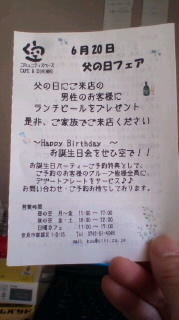 コミュニティスペース
CAFE & DINING
6月20日
父の日フェア
父の日にご来店の
男性のお客様に
ランチビールをプレゼント
是非、ご家族でご来店ください
～Happy Birthday ～
お誕生日会をぜひ空で！！
お誕生日パーティーご予約特典として、
ご予約のお客様のグループ皆様全員に、
デザートプレートをサービス♪♪
お問い合わせ・ご予約お待ちしております。
営業時間
昼の空 月～金 11:00 ～ 17:00
夜の空 金・土 18:00 ～ 22:00
日曜カフェ 11:00 ～ 17:00